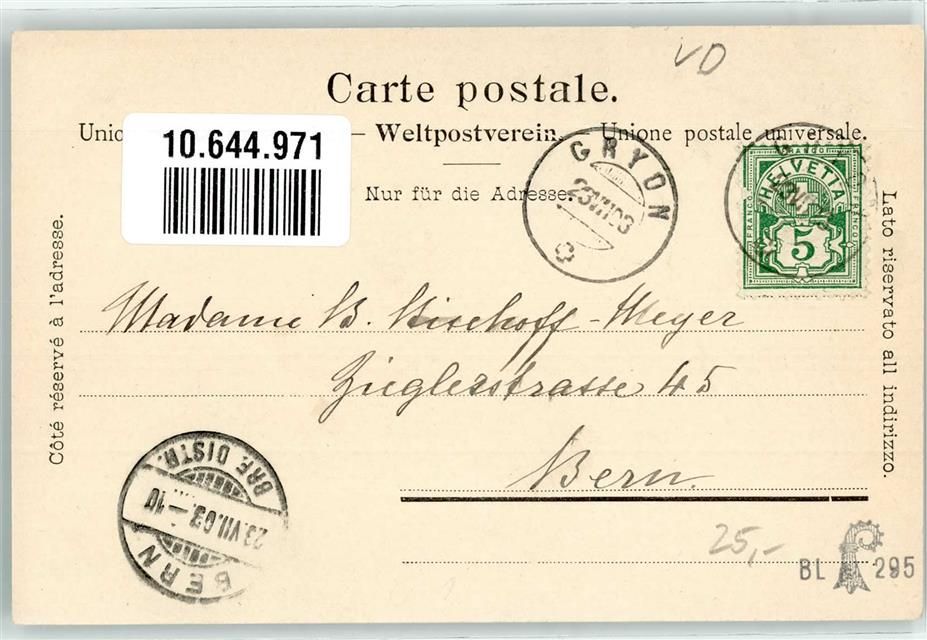 VD
Carte postale.
Unio — Weltpostverein. — Unione postale universale.
10.644.971
Nur für die Adresse.
GRYON
23 VII 03
HELVETIA
FRANCO
FRANCO
FRANCO
5
Côté réservé à l'adresse.
Lato riservato all indirizzo.
Madame B. Bischoff-Meyer
Zieglerstrasse 45
Bern.
BRF. DISTR.
23.VII.03.-10
BERN
25,-
BL 295